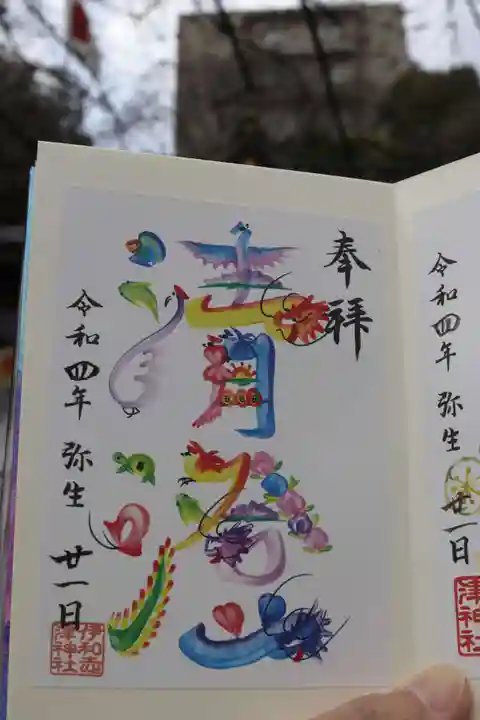 奉拝
清
令和四年 弥生 廿一日
伊和志
津神社
令和四年 弥生 廿一日
津神社